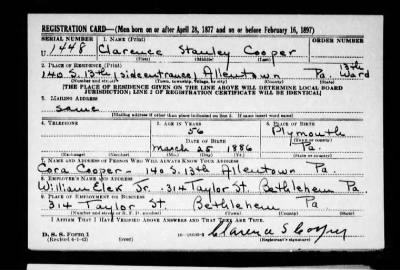 REGISTRATION CARD—(Men born on or after April 28, 1877 and on or before February 16, 1897)
SERIAL NUMBER 1. NAME (Print) ORDER NUMBER
U 1448 Clarence Stanley Cooper
(First) (Middle) (Last)
2. PLACE OF RESIDENCE (Print) 13th
140 S. 13th (side entrance) Allentown Pa. Ward
(Number and street) (Town, township, village, or city) (County) (State)
[THE PLACE OF RESIDENCE GIVEN ON THE LINE ABOVE WILL DETERMINE LOCAL BOARD
JURISDICTION; LINE 2 OF REGISTRATION CERTIFICATE WILL BE IDENTICAL]
3. MAILING ADDRESS
Same
[Mailing address if other than place indicated on line 2. If same insert word same]
4. TELEPHONE 5. AGE IN YEARS 6. PLACE OF BIRTH
56 Plymouth
DATE OF BIRTH (Town or county)
March 25 1886 Pa.
(Exchange) (Number) (Mo.) (Day) (Yr.) (State or country)
7. NAME AND ADDRESS OF PERSON WHO WILL ALWAYS KNOW YOUR ADDRESS
Cora Cooper - 140 S. 13th Allentown Pa.
8. EMPLOYER'S NAME AND ADDRESS
William Elek Jr. 314 Taylor St. Bethlehem Pa.
9. PLACE OF EMPLOYMENT OR BUSINESS
314 Taylor St. Bethlehem Pa
(Number and street or R. F. D. number) (Town) (County) (State)
I AFFIRM THAT I HAVE VERIFIED ABOVE ANSWERS AND THAT THEY ARE TRUE.
D. S. S. Form 1
(Revised 4-1-42) Clarence S Cooper
(Registrant's signature)